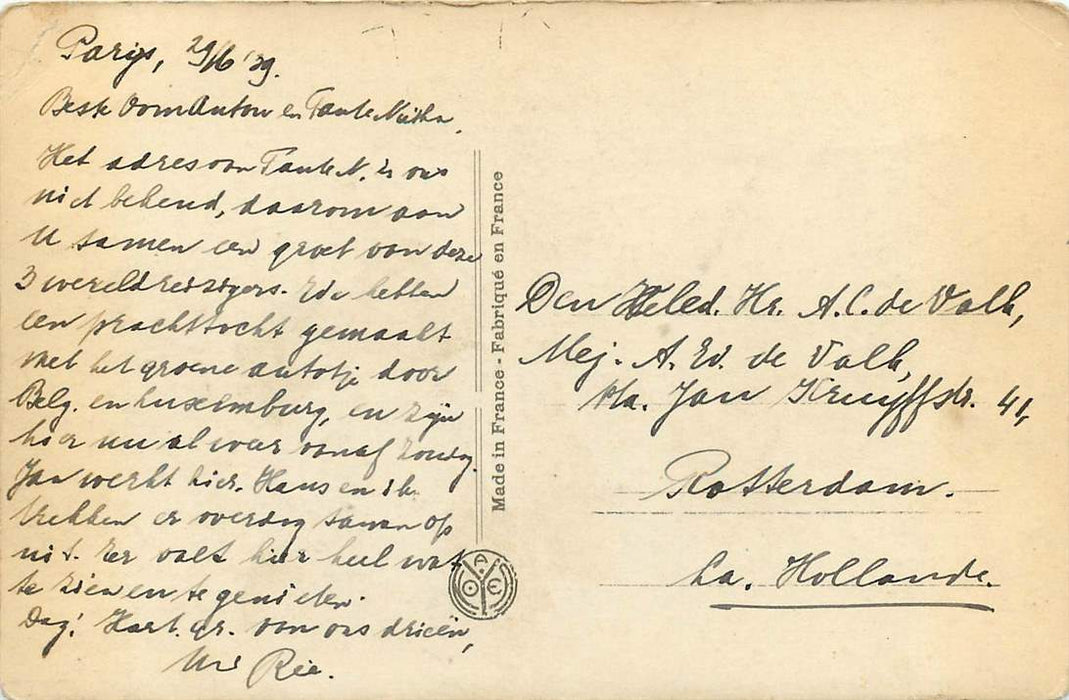 Parijs, 29/6 '39.
Beste Oom Anton en Tante
Het adres van Tante N. is ons
niet bekend, daarom aan
U samen een groet van deze
3 wereldreizigers. We hebben
een prachttocht gemaakt
met het groene autotje door
Belg. en Luxemburg, en zijn
hier nu al weer vanaf Zondag.
Jan werkt hier. Hans en ik
trekken er overdag samen op
uit. Er valt hier heel wat
te zien en te genieten.
Dag! Hart. gr. van ons drieën,
Rie.
Made in France - Fabriqué en France
Den Hr. A.C. de Valk,
Mej. A. W. de Valk,
Jan Kruijffstr. 41,
Rotterdam.
La. Hollande.